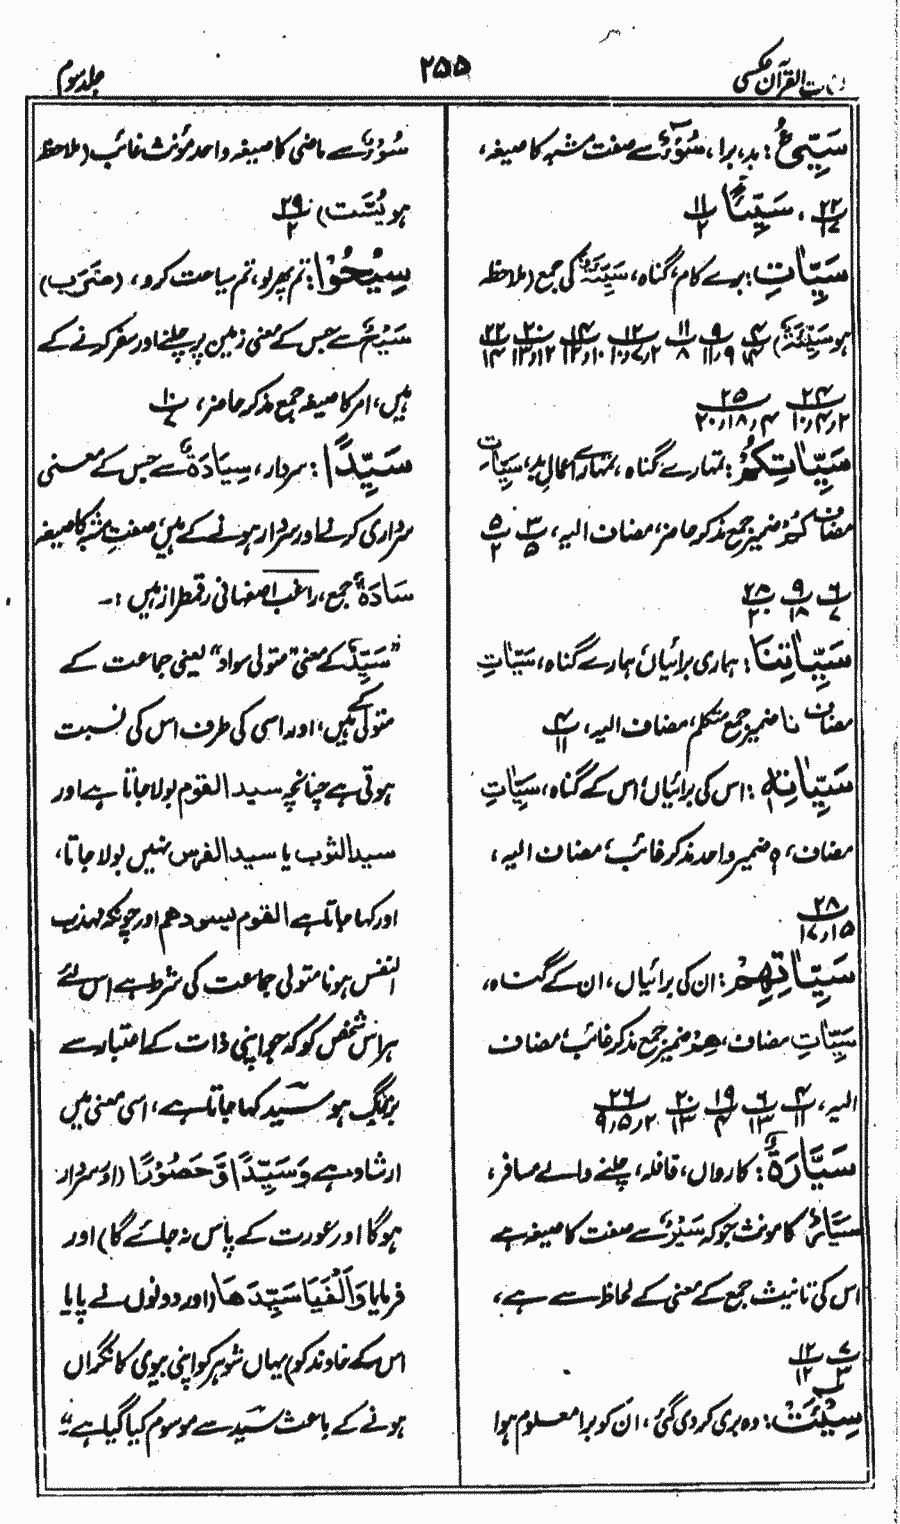 لغات القرآن عکسی
۲۵۵
جلد سوم
سَیِّئٌ: بد، برا، سُوْءٌ سے صفت مشبہ کا صیغہ،
۲۲/۱۷ ، سَیِّئًا ۱۱/۲
سَیِّاٰتِ: برے کام، گناہ، سَیِّئَۃٌ کی جمع (ملاحظہ
ہو سَیِّئَۃٌ) ۴/۱۴ ۹/۹،۱۱ ۱۱/۸ ۱۲/۲،۷،۱۰ ۱۴/۱۰،۱۲ ۲۰/۱۲،۱۳ ۲۲/۱۴
۲۴/۲،۴،۱۰ ۲۵/۴،۱۸،۲۰
سَیِّاٰتِکُمْ: تمہارے گناہ، تمہارے اعمالِ بد، سَیِّاٰت
مضاف کُمْ ضمیر جمع مذکر حاضر، مضاف الیہ، ۳/۵ ۵/۲
۶/۷ ۹/۱۸ ۲۸/۲۰
سَیِّاٰتِنَا: ہماری برائیاں ہمارے گناہ، سَیِّاٰتِ
مضاف نا ضمیر جمع متکلم، مضاف الیہ، ۴/۱۱
سَیِّاٰتِہٖ: اس کی برائیاں، اس کے گناہ، سَیِّاٰتِ
مضاف، ہ ضمیر واحد مذکر غائب، مضاف الیہ،
۲۸/۱۵،۱۷
سَیِّاٰتِھِمْ: ان کی برائیاں، ان کے گناہ،
سَیِّاٰتِ مضاف، ھِمْ ضمیر جمع مذکر غائب، مضاف
الیہ، ۴/۱۱ ۶/۱۳ ۱۹/۴ ۲۰/۱۳ ۲۶/۲،۵،۹
سَیَّارَۃٌ: کارواں، قافلہ، چلنے والے مسافر،
سَیَّارٌ کا مونث جو کہ سَیْرٌ سے صفت کا صیغہ ہے
اس کی تانیث جمع کے معنی کے لحاظ سے ہے،
۷/۳ ۱۲/۱۲
سِیْئَتْ: وہ بری کردی گئی، ان کو برا معلوم ہوا
سُوْءٌ سے ماضی کا صیغہ واحد مؤنث غائب (ملاحظہ
ہو سُیَّت) ۲۹/۲
سِیْحُوْا: تم پھرلو، تم سیاحت کرو، (ضَرَبَ)
سَیْحٌ سے جس کے معنی زمین پر چلنے اور سفر کرنے کے
ہیں، امر کا صیغہ جمع مذکر حاضر، ۱۰/۷
سَیِّدًا: سردار، سِیَادَۃٌ سے جس کے معنی
سرداری کرنے اور سردار ہونے کے ہیں، صفت مشبہ کا صیغہ
سَادَۃٌ جمع، راغب اصفہانی رقمطراز ہیں :۔
”سَیِّدٌ کے معنی ”متولی سواد“ یعنی جماعت کے
متولی کے ہیں، اور اسی کی طرف اس کی نسبت
ہوتی ہے چنانچہ سید القوم بولا جاتا ہے اور
سید الثوب یا سید الفرس نہیں بولا جاتا،
اور کہا جاتا ہے القوم یسودھم اور چونکہ مہذب
النفس ہونا متولی جماعت کی شرط ہے اس لئے
ہر اس شخص کو کہ جو اپنی ذات کے اعتبار سے
بزرگ ہو سید کہا جاتا ہے، اسی معنی میں
ارشاد ہے وَسَیِّدًا وَّحَصُوْرًا (اور سردار
ہوگا اور عورت کے پاس نہ جائے گا) اور
فرمایا وَاَلْفَیَا سَیِّدَھَا (اور دونوں نے پایا
اس کے خاوند کو) یہاں شوہر کو اپنی بیوی کا نگراں
ہونے کے باعث سید سے موسوم کیا گیا ہے“